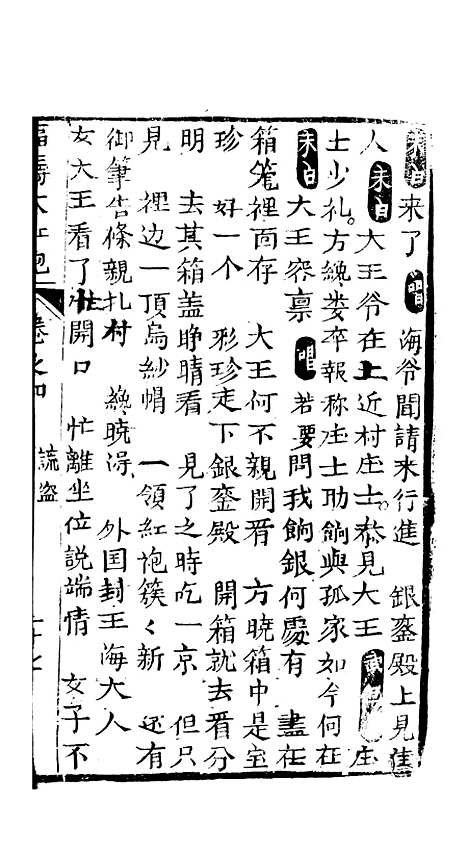 末白来了 唱 海爷聞請来行進 銀鑾殿上見佳
人 末白 大王爷在上近村庄士恭見大王 武白 庄
士少礼方纔娄卒報称庄士助餉與孤家如今何在
末白 大王容禀 唱 若要問我餉銀何處有 盡在
箱笼裡面存 大王何不親開看 方曉箱中是宝
珍 好一个 彩珍走下銀鑾殿 開箱就去看分
明 去其箱盖睁睛看 見了之時吃一京 但只
見 裡边一頂烏紗帽 一領紅袍簇〻新 还有
御筆告條親扎村 纔曉淂 外国封王海大人
女大王看了 開口 忙離坐位説端情 女子不
福壽大红袍 卷之四 流盗